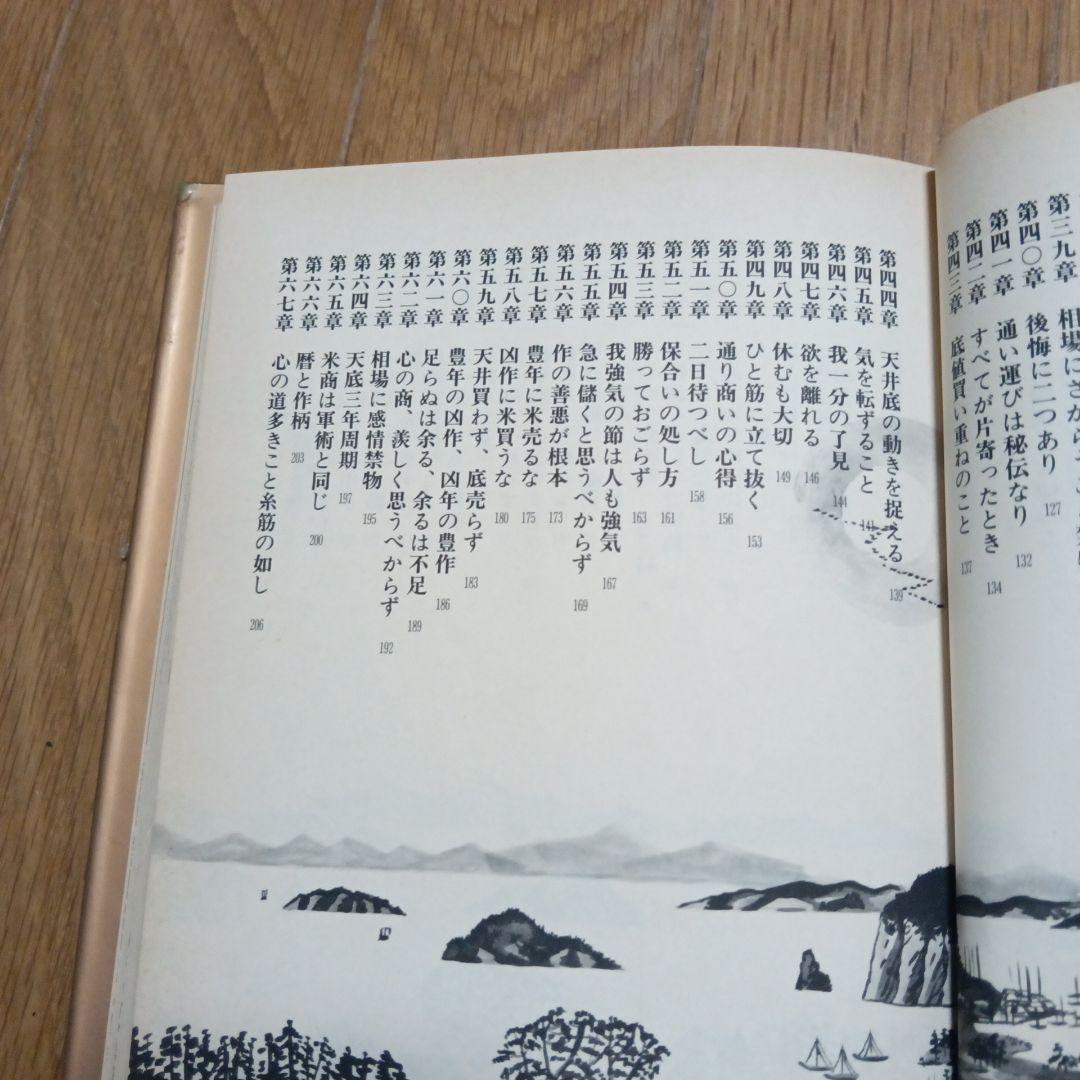 第三九章 相場にさか
第四〇章 後悔に二つあり 127
第四一章 通い運びは秘伝なり 132
第四二章 すべてが片寄ったとき 134
第四三章 底値買い重ねのこと 137
第四四章 天井底の動きを捉える 139
第四五章 気を転ずること
第四六章 我一分の了見 144
第四七章 欲を離れる 146
第四八章 休むも大切 149
第四九章 ひと筋に立て抜く 153
第五〇章 通り商いの心得 156
第五一章 二日待つべし 158
第五二章 保合いの処し方 161
第五三章 勝っておごらず 163
第五四章 我強気の節は人も強気 167
第五五章 急に儲くと思うべからず 169
第五六章 作の善悪が根本 173
第五七章 豊年に米売るな 175
第五八章 凶作に米買うな 180
第五九章 天井買わず、底売らず 183
第六〇章 豊年の凶作、凶年の豊作 186
第六一章 足らぬは余る、余るは不足 189
第六二章 心の商、羨しく思うべからず 192
第六三章 相場に感情禁物 195
第六四章 天底三年周期 197
第六五章 米商は軍術と同じ 200
第六六章 暦と作柄 203
第六七章 心の道多きこと糸筋の如し 206